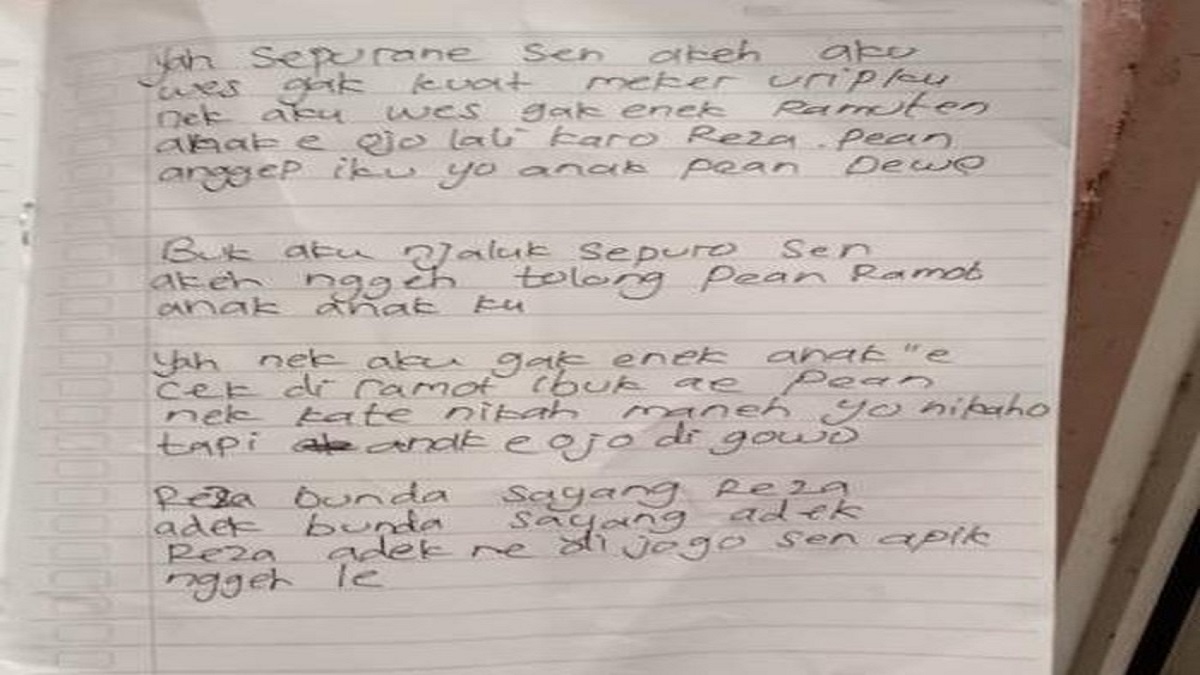 Yah sepurane sen akeh aku
wes gak kuat meker uripku
nek aku wes gak enek Ramuten
anak e ojo lali karo Reza. pean
anggep iku yo anak pean Dewe
Buk aku njaluk sepuro sen
akeh nggeh tolong pean Ramot
anak anak ku
Yah nek aku gak enek anak "e
cek di ramot ibuk ae pean
nek kate nikah maneh yo nikaho
tapi anak e ojo di gowo
Reza bunda sayang Reza
adek bunda sayang adek
Reza adek ne di jogo sen apik
nggeh le